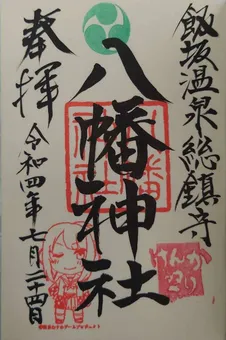 飯坂温泉総鎮守
八幡神社
奉拝
令和四年七月二十四日
けんか
祭り